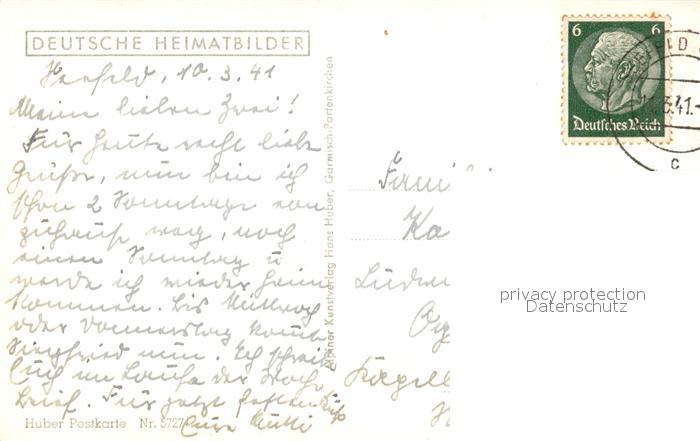 DEUTSCHE HEIMATBILDER
Hersfeld, 10.3.41
Meine lieben Zwei!
Für heute recht liebe
Grüße, nun bin ich
schon 2 Sonntage von
zuhause weg, noch
einen Sonntag u
werde ich wieder heim
kommen. Bis Mittwoch
oder Donnerstag kommt
Siegfried nun. Ich schreib
Euch im Laufe der Woche
Brief. Für jetzt festen Kuß
Eure Mutti
Huber Postkarte Nr. 5727
Alpiner Kunstverlag Hans Huber, Garmisch-Partenkirchen
6 6
Deutsches Reich
3.41.-
c
Fami
Ka
Ludw
privacy protection
Datenschutz